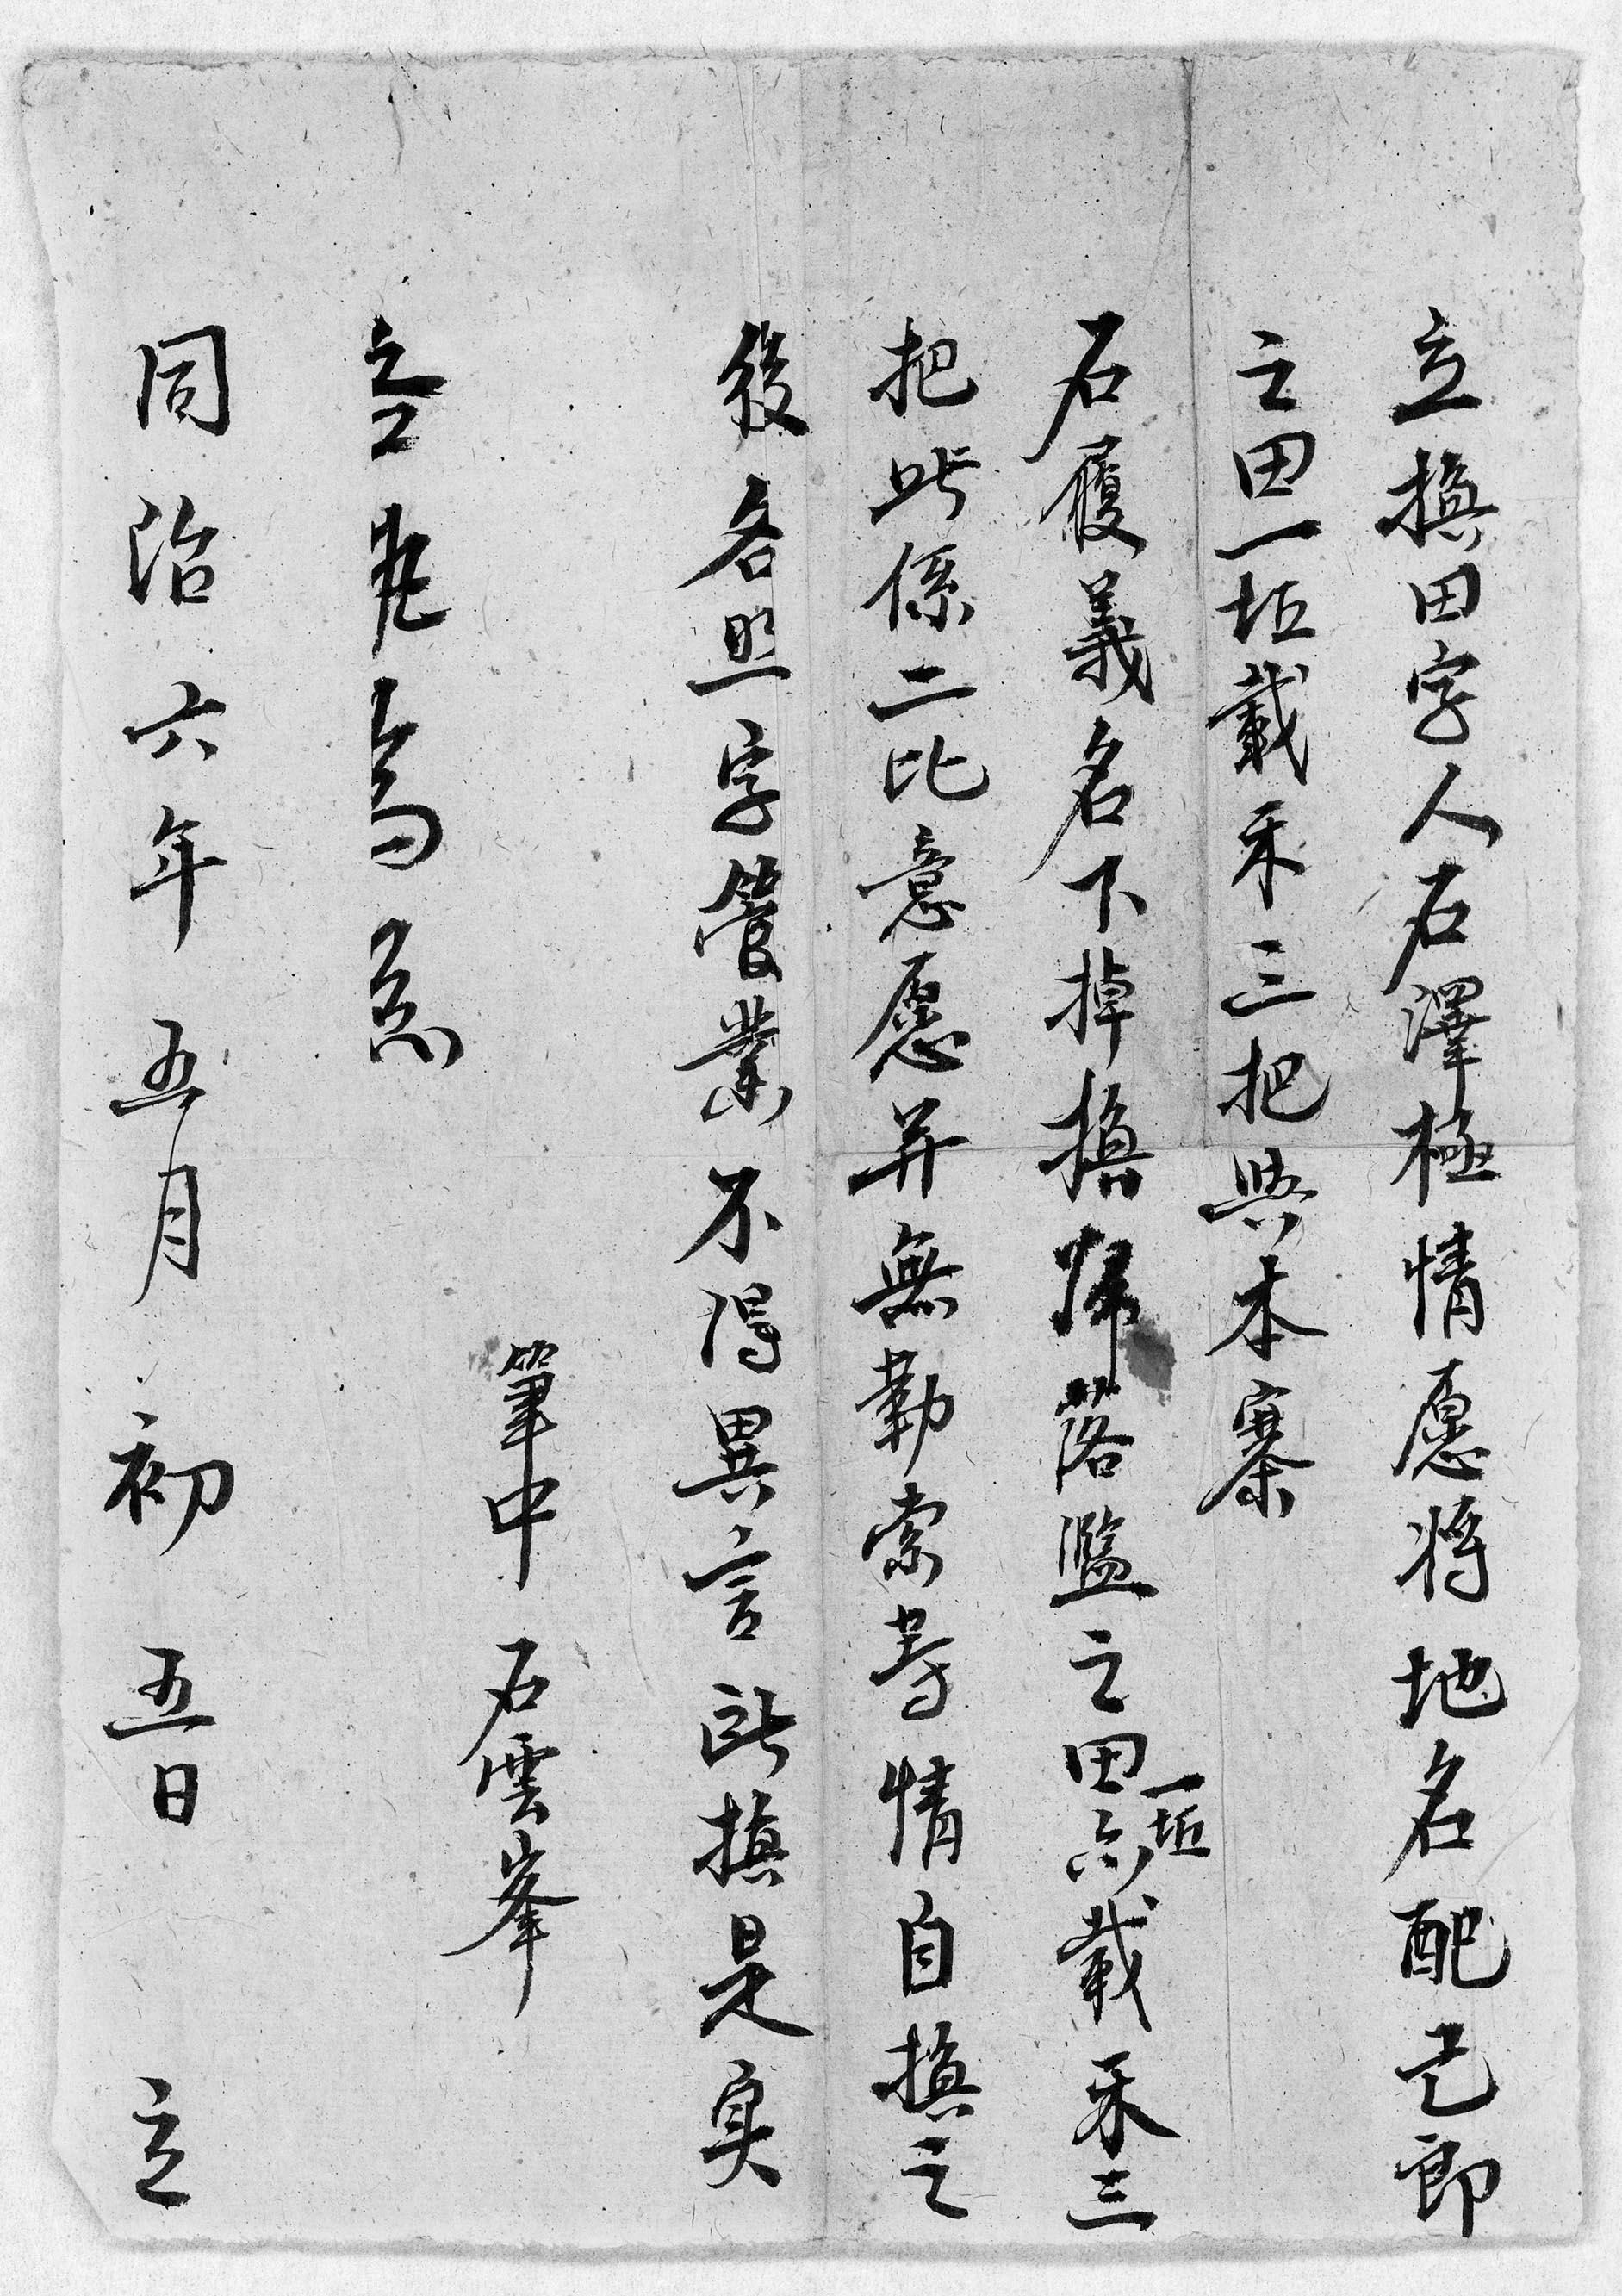 立換田字人石澤極情愿将地名配己郎
之田一坵載禾三把與本寨
石履義名下掉換歸落濫之田一坵亦載禾三
把此係二比意愿并無勒索等情自換之
後各照字管業不得異言所換是實
筆中 石雲峯
立此為
同治六年五月初五日 立